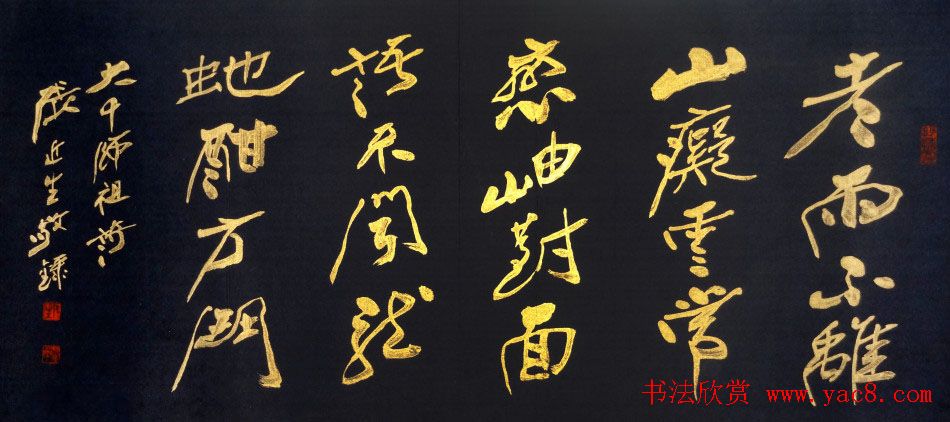 老雨不離
山癡雲常
戀岫對面
語不聞龍
虵酣方鬥
大千師祖詩
近生敬錄
书法欣赏 www.yac8.com